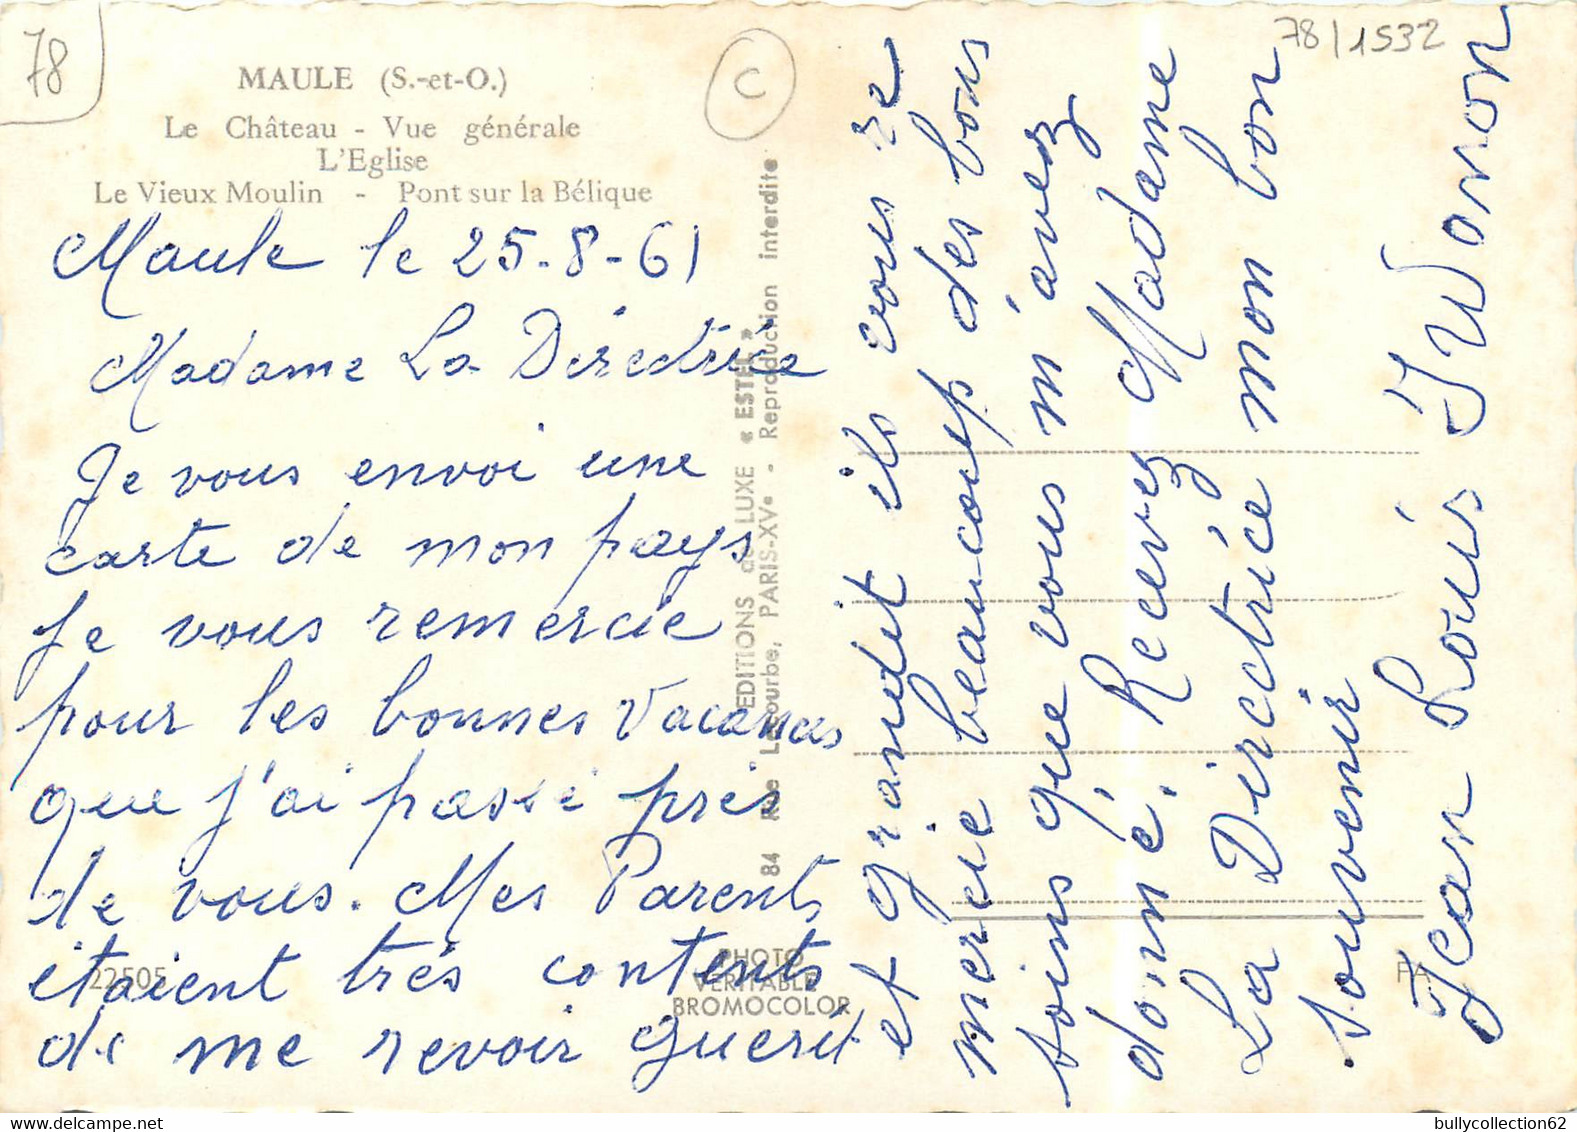 78
78/1532
C
MAULE (S.-et-O.)
Le Château - Vue générale
L'Eglise
Le Vieux Moulin - Pont sur la Bélique
Maule le 25-8-61
Madame La Diréctrice
Je vous envoi une
carte de mon pays
Je vous remercie
pour les bonnes Vacances
que j'ai passé prés
de vous. Mes Parents
étaient trés contents
de me revoir guerit
et grandit ils vous re
mercie beaucoup des bons
soins que vous m'avez
donné. Recevez Madame
La Directrice mon bon
souvenir
Jean Louis
EDITIONS de LUXE « ESTEL »
84 Rue Lecourbe, PARIS-XVe - Reproduction interdite
22505
PHOTO
VERITABLE
BROMOCOLOR
bullycollection62